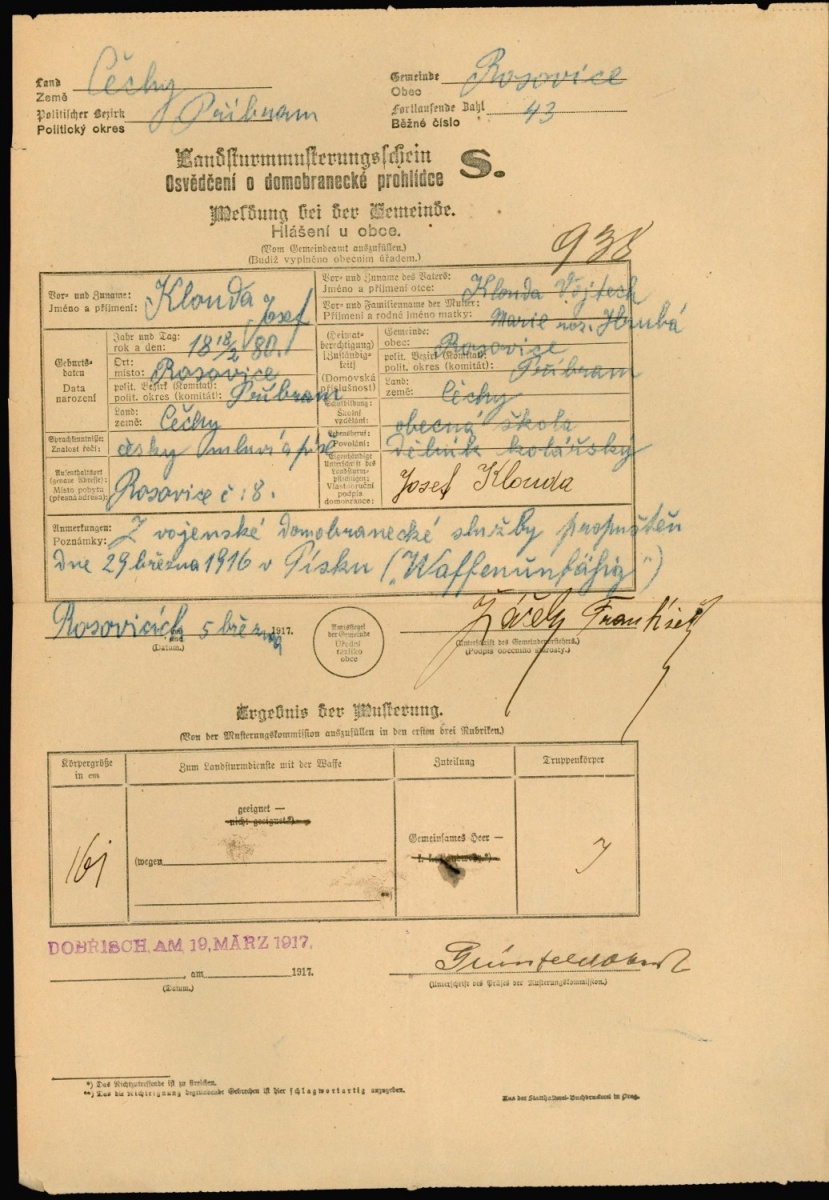 Land Čechy
Země
Politischer Bezirk Příbram
Politický okres
Gemeinde Rosovice
Obec
Fortlaufende Zahl 43
Běžné číslo
Landsturmmusterungsschein S.
Osvědčení o domobranecké prohlídce
Meldung bei der Gemeinde.
Hlášení u obce.
(Vom Gemeindeamt auszufüllen.)
(Budiž vyplněno obecním úřadem.)
938
Vor- und Zuname: Klouda Josef
Jméno a příjmení:
Vor- und Zuname des Vaters: Klouda Vojtech
Jméno a příjmení otce:
Vor- und Familienname der Mutter: Marie roz. Hrubá
Příjmení a rodné jméno matky:
Geburts-
daten
Data
narození
Jahr und Tag:
rok a den: 18 18/2 80.
Ort:
místo: Rosovice
polit. Bezirk (Komitat):
polit. okres (komitát): Příbram
Land:
země: Čechy
(Heimat-
berechtigung)
(Zuständig-
keit)
(Domovská
příslušnost)
Gemeinde:
obec: Rosovice
polit. Bezirk (Komitat):
polit. okres (komitát): Příbram
Land:
země: Čechy
Schulbildung:
Školní
vzdělání: obecná škola
Sprachkenntnisse:
Znalost řečí: česky mluví a píše
Lebensberuf:
Povolání: dělník kolářský
Aufenthaltsort
(genaue Adresse):
Místo pobytu
(přesná adresa): Rosovice č: 8.
Eigenhändige
Unterschrift des
Landsturm-
pflichtigen:
Vlastnoruční
podpis
domobrance: Josef Klouda
Anmerkungen: Z vojenské domobranecké služby propuštěn
Poznámky:
dne 29 března 1916 v Písku („Waffenunfähig“)
Rosovicích 5 března 1917.
(Datum.)
Amtssiegel
der Gemeinde
Úřední
razítko
obce
Žáček František
(Unterschrift des Gemeindevorstehers.)
(Podpis obecního starosty.)
Ergebnis der Musterung.
(Von der Musterungskommission auszufüllen in den ersten drei Rubriken.)
Körpergröße
in cm
Zum Landsturmdienste mit der Waffe
Zuteilung
Truppenkörper
161
geeignet —
nicht geeignet*) —
(wegen
**)
Gemeinsames Heer —
DOBŘISCH, AM 19. MÄRZ 1917.
, am 1917.
(Datum.)
(Unterschrift des Präses der Musterungskommission.)
*) Das Nichtzutreffende ist zu streichen.
**) Das die Nichteignung begründende Gebrechen ist hier schlagwortartig anzugeben.
Aus der Statthalterei-Buchdruckerei in Prag.